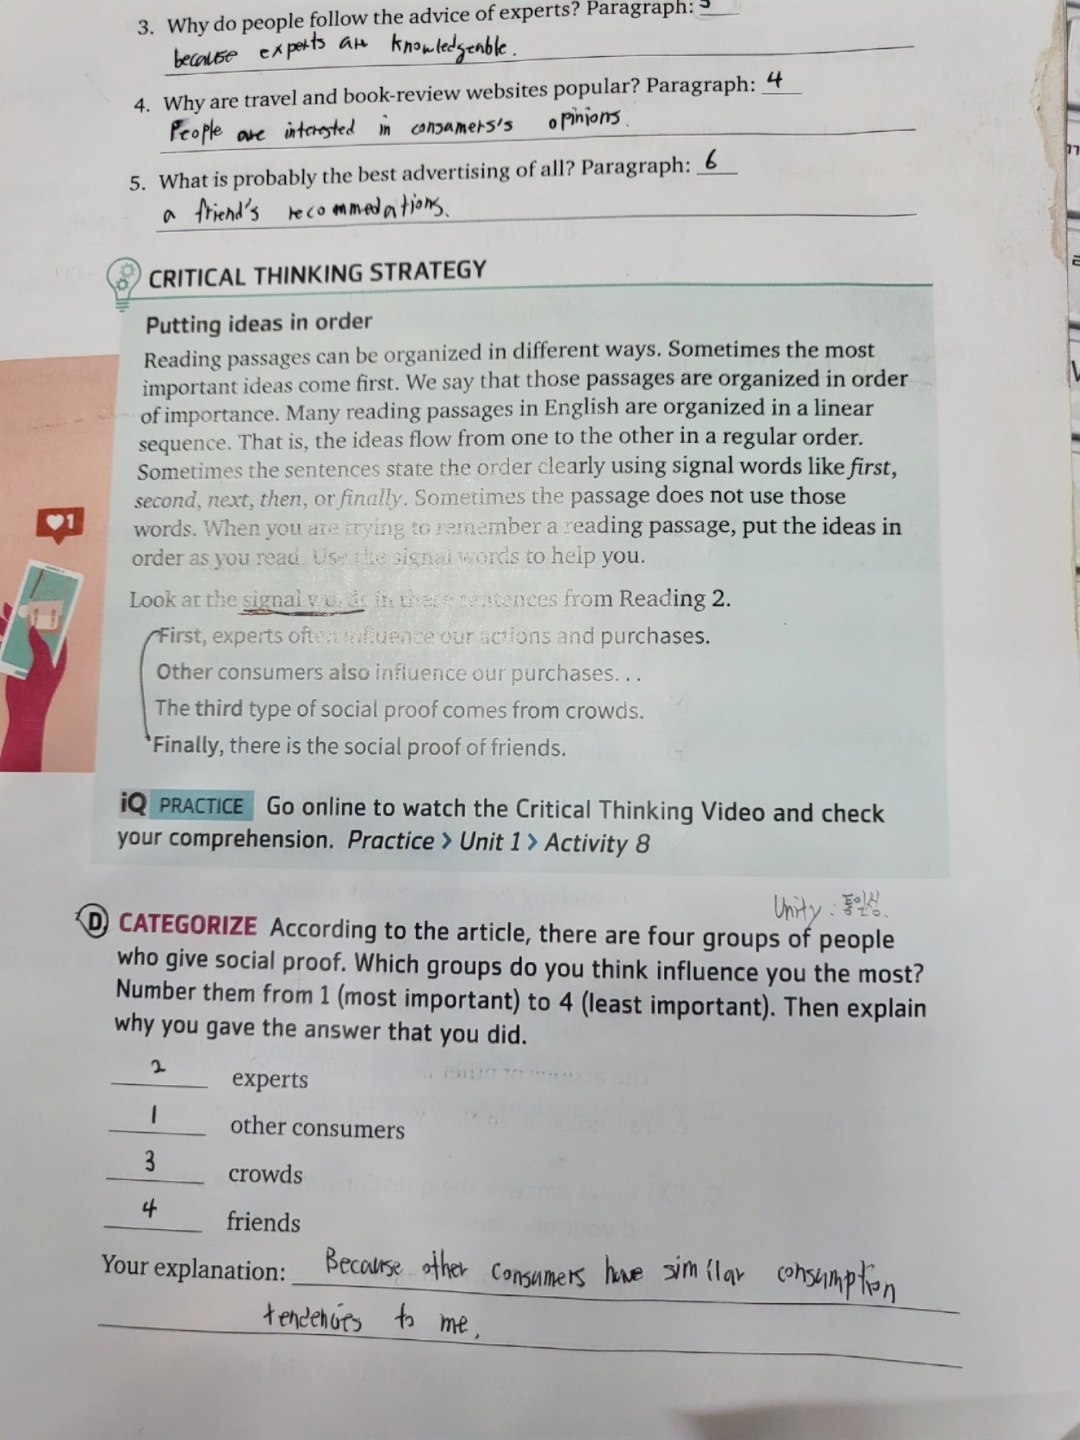 3. Why do people follow the advice of experts? Paragraph:
because experts are knowledgeable.
4. Why are travel and book-review websites popular? Paragraph: 4
People are interested in consumers's opinions.
5. What is probably the best advertising of all? Paragraph: 6
a friend's recommedations.
CRITICAL THINKING STRATEGY
Putting ideas in order
Reading passages can be organized in different ways. Sometimes the most
important ideas come first. We say that those passages are organized in order
of importance. Many reading passages in English are organized in a linear
sequence. That is, the ideas flow from one to the other in a regular order.
Sometimes the sentences state the order clearly using signal words like first,
second, next, then, or finally. Sometimes the passage does not use those
words. When you are trying to remember a reading passage, put the ideas in
order as you read. Use the signal words to help you.
Look at the signal words in these sentences from Reading 2.
First, experts often influence our actions and purchases.
Other consumers also influence our purchases. . .
The third type of social proof comes from crowds.
Finally, there is the social proof of friends.
1
iQ PRACTICE Go online to watch the Critical Thinking Video and check
your comprehension. Practice > Unit 1 > Activity 8
Unity : 통일성.
D. CATEGORIZE According to the article, there are four groups of people
who give social proof. Which groups do you think influence you the most?
Number them from 1 (most important) to 4 (least important). Then explain
why you gave the answer that you did.
2 experts
1 other consumers
3 crowds
4 friends
Your explanation: Because other consumers have similar consumption
tendencies to me.